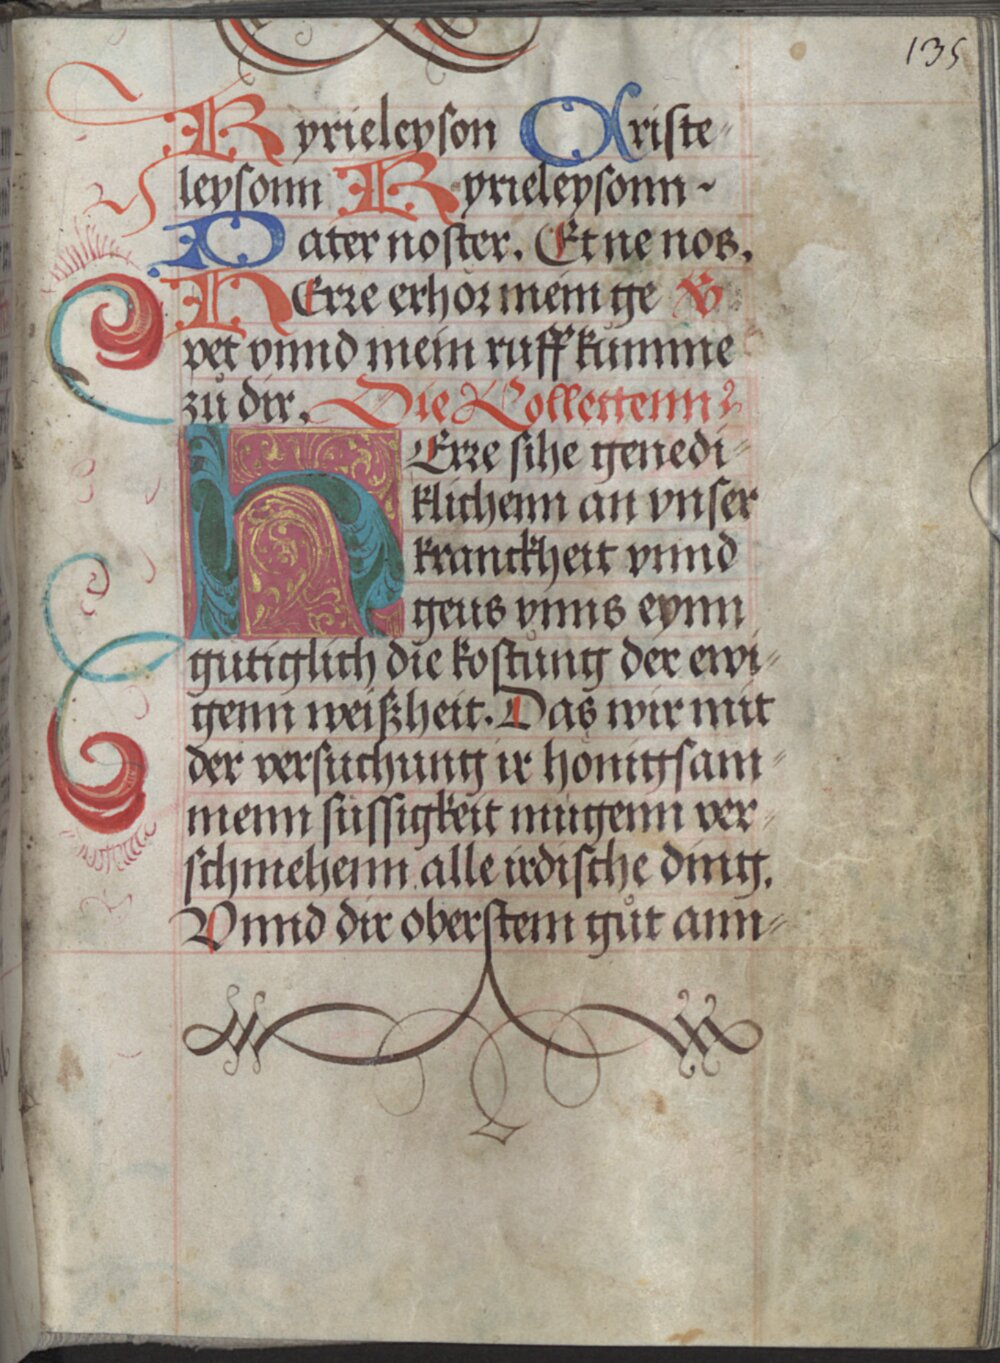 135
Kyrieleyson Criste-
leysonn Kyrieleysonn
Pater noster. Et ne nos.
HErre erhör mein ge V
pet vnnd mein ruff kumme
zů dir. Die Collettenn
hErre sihe genedi-
klichenn an vnser
kranckheit vnnd
geus vnns eynn
gütiglich die kostung der ewi-
genn weißheit. Das wir mit
der versuchung ir hönigsam-
menn süssigkeit mügenn ver-
schmehenn alle irdische ding.
Vnnd dir oberstem gůt ann-